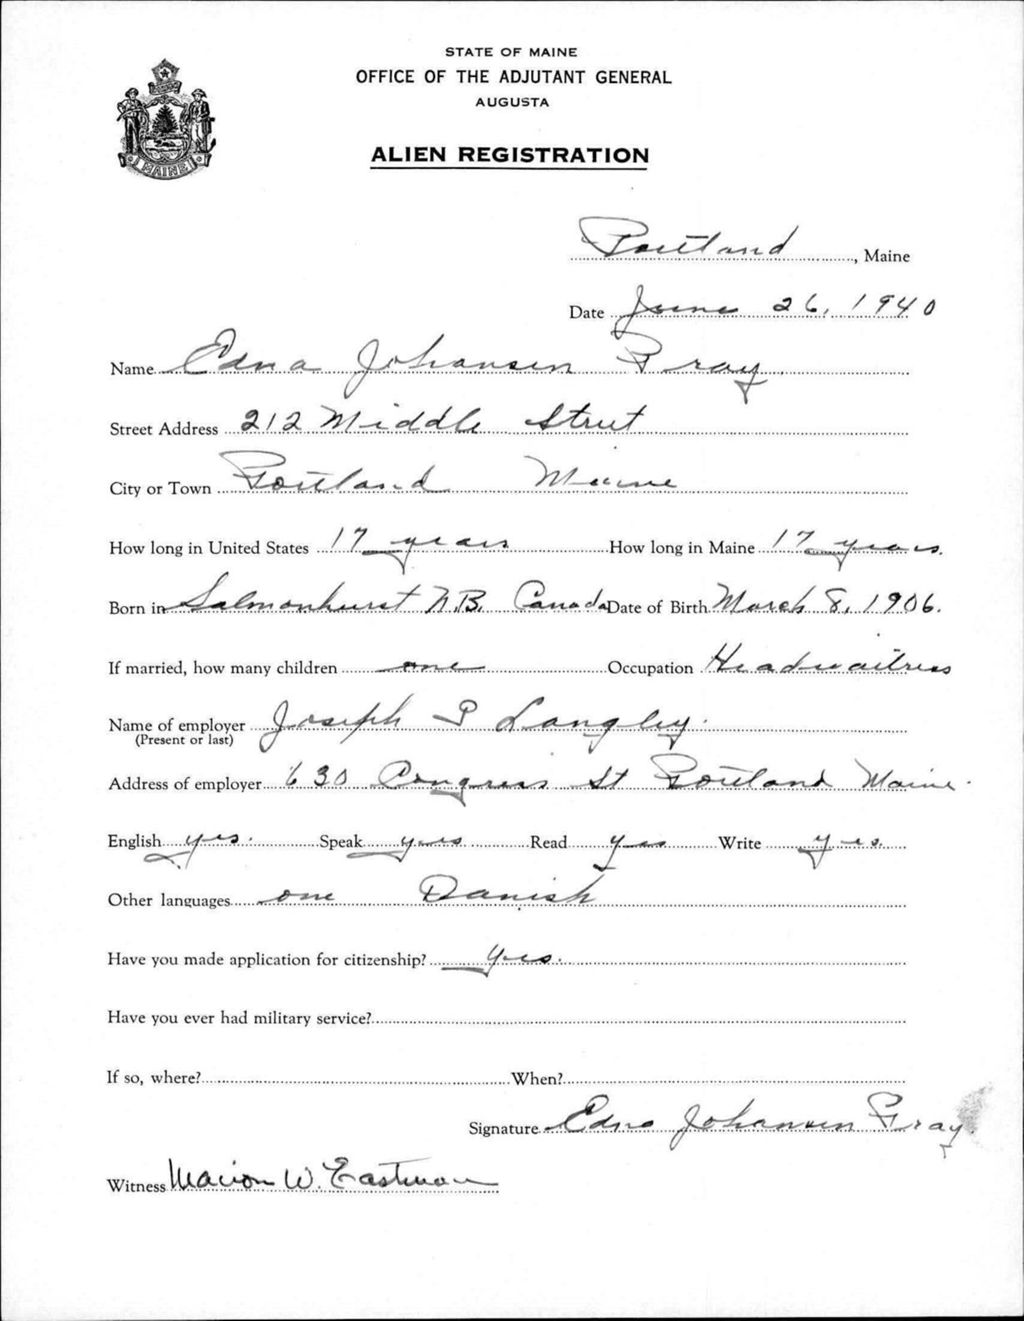 STATE OF MAINE
OFFICE OF THE ADJUTANT GENERAL
AUGUSTA
ALIEN REGISTRATION
MAINE
Portland, Maine
Date June 26, 1940
Name Edna Johansen Gray
Street Address 212 Middle Street
City or Town Portland Maine
How long in United States 17 years How long in Maine 17 years.
Born in Salmonhurst N.B. Canada Date of Birth March 8, 1906.
If married, how many children one Occupation Headwaitress
Name of employer Joseph P Langley.
(Present or last)
Address of employer 630 Congress St Portland Maine.
English yes. Speak yes Read yes Write yes.
Other languages one Danish
Have you made application for citizenship? yes.
Have you ever had military service?
If so, where? When?
Signature Edna Johansen Gray
Witness Marion W. Eastman